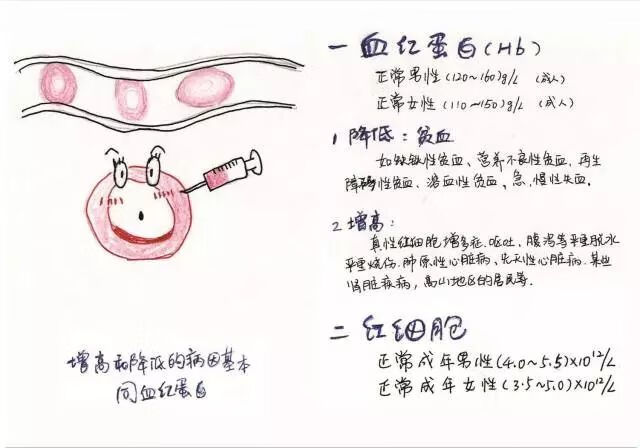 一 血红蛋白(Hb)
正常男性(120~160)g/L (成人)
正常女性(110~150)g/L (成人)
1.降低：贫血
如缺铁性贫血、营养不良性贫血、再生
障碍性贫血、溶血性贫血、急、慢性失血。
2.增高：
真性红细胞增多症、呕吐、腹泻等严重脱水
严重烧伤、肺原性心脏病、先天性心脏病、某些
肾脏疾病，高山地区的居民等。
二 红细胞
正常成年男性(4.0~5.5)×10¹²/L
正常成年女性(3.5~5.0)×10¹²/L
增高和降低的病因基本
同血红蛋白